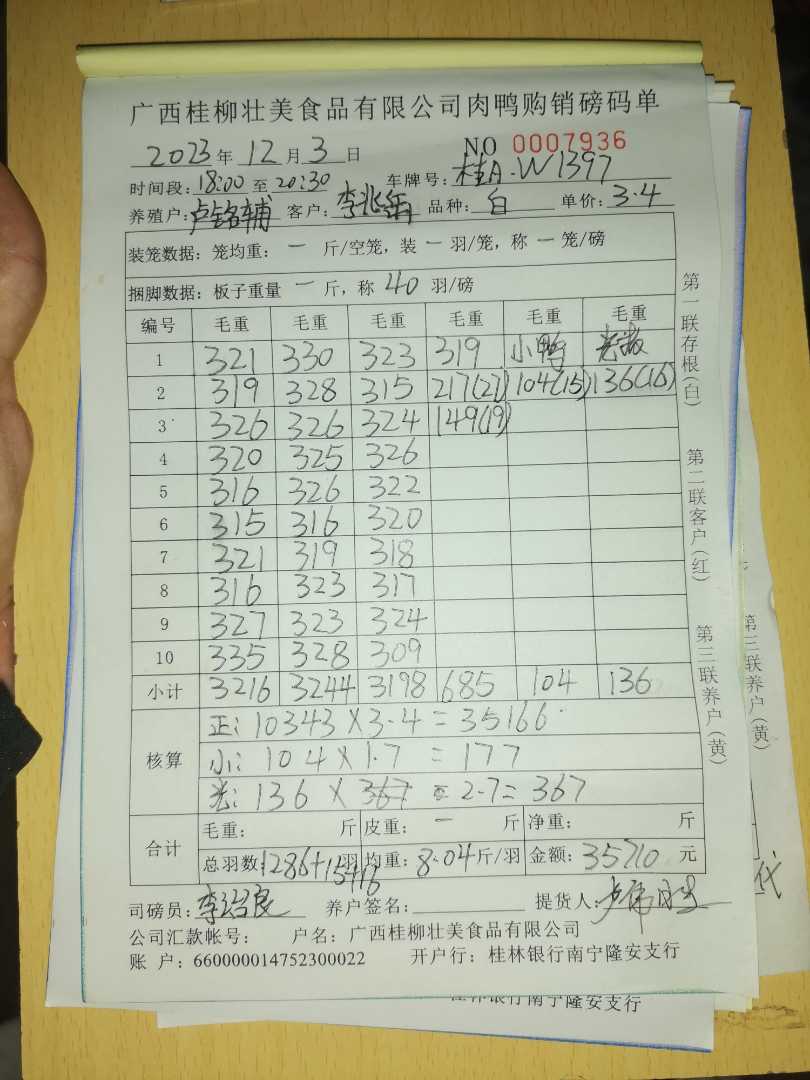 广西桂柳壮美食品有限公司肉鸭购销磅码单
NO 0007936
2023年12月3日
时间段:18:00至20:30 车牌号:桂A·W1397
养殖户:卢铭辅 客户:李兆 品种:白 单价:3.4
装笼数据:笼均重:一斤/空笼,装一羽/笼,称一笼/磅
捆脚数据:板子重量一斤,称40羽/磅
编号 毛重 毛重 毛重 毛重 毛重 毛重
1 321 330 323 319 小鸭
2 319 328 315 217(27) 104(15) 136(16)
3 326 326 324 149(19)
4 320 325 326
5 316 326 322
6 315 316 320
7 321 319 318
8 316 323 317
9 327 323 324
10 335 328 309
小计 3216 3244 3198 685 104 136
核算
正:10343×3.4=35166
小:104×1.7=177
光:136×367=2.7=367
合计
毛重: 斤 皮重:一斤 净重: 斤
总羽数:1286+15+16羽 均重:8.04斤/羽 金额:35710元
司磅员:李绍良 养户签名: 提货人:卢
公司汇款帐号: 户名:广西桂柳壮美食品有限公司
账户:660000014752300022 开户行:桂林银行南宁隆安支行
第一联存根(白)
第二联客户(红)
第三联养户(黄)
第三联养户(黄)
代
桂林银行南宁隆安支行